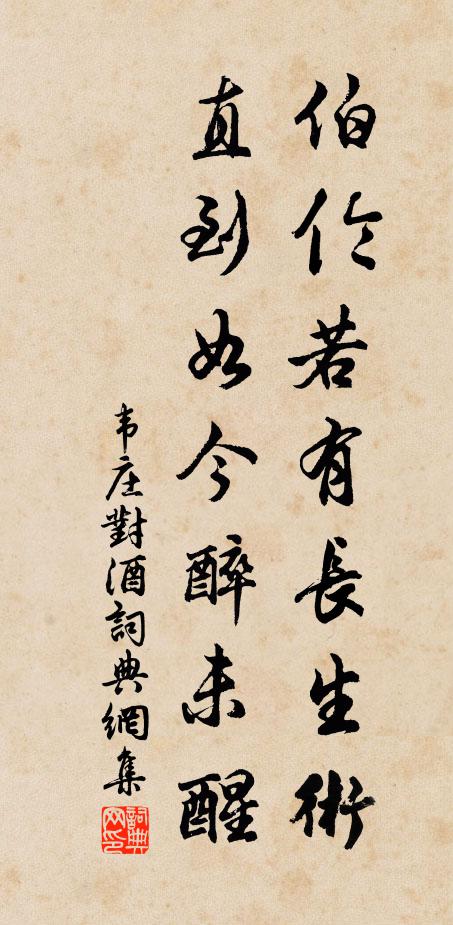 伯伶若有長生術
直到如今醉未醒
韦庄對酒詞典網集
詞典网印